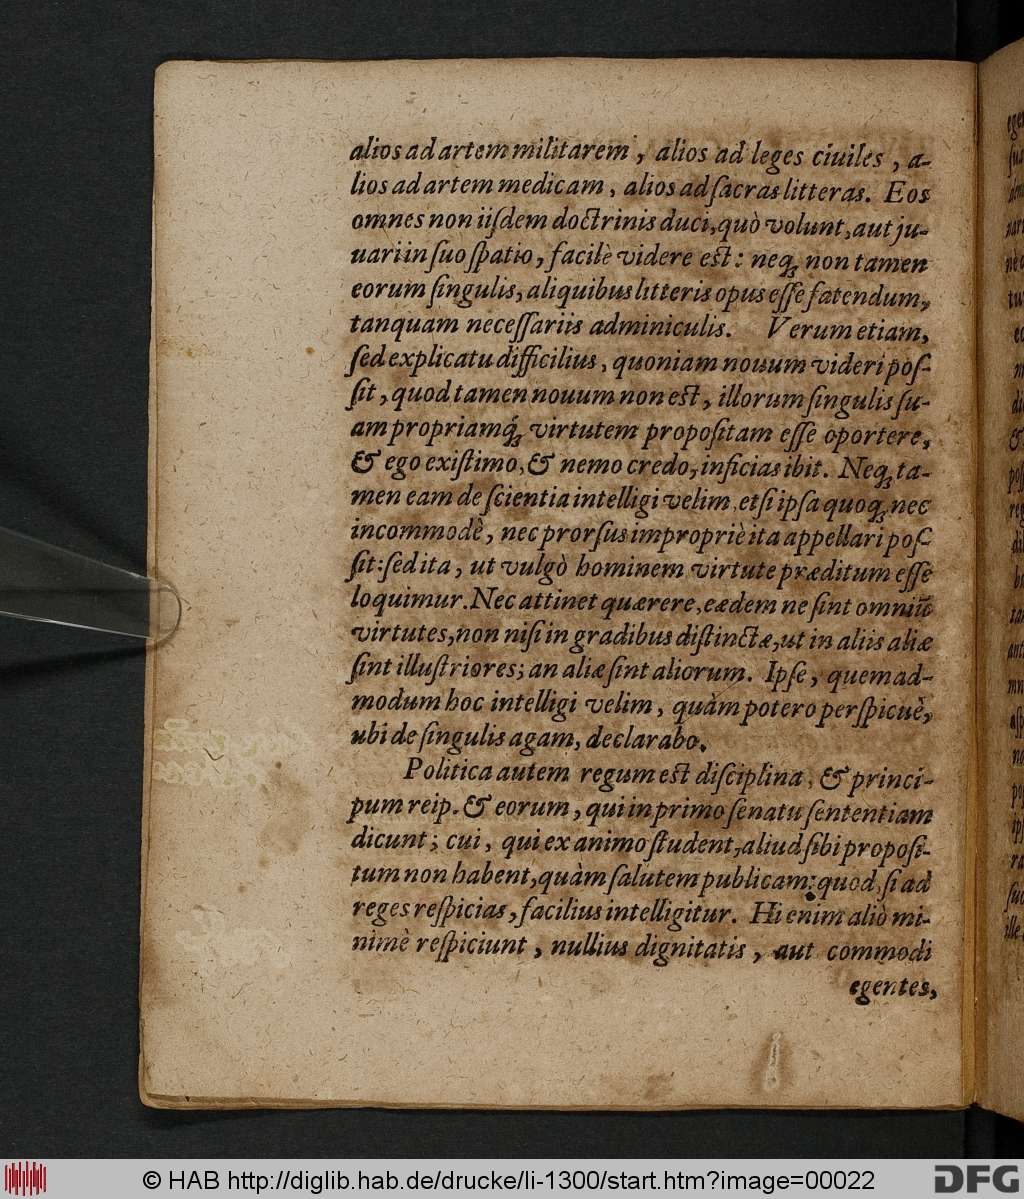 alios ad artem militarem, alios ad leges ciuiles, a-
lios ad artem medicam, alios ad ſacras litteras. Eos
omnes non iiſdem doctrinis duci, quò volunt, aut ju-
uari in ſuo ſpatio, facilè videre est: neqꝫ non tamen
eorum ſingulis, aliquibus litteris opus eſſe fatendum,
tanquam neceſſariis adminiculis. Verum etiam,
ſed explicatu difficilius, quoniam nouum videri poſ-
ſit, quod tamen nouum non est, illorum ſingulis ſu-
am propriamq́ꝫ virtutem propoſitam eſſe oportere,
& ego exiſtimo, & nemo credo, inficias ibit. Neqꝫ ta-
men eam de ſcientia intelligi velim, etſi ipſa quoqꝫ nec
incommodè, nec prorſus impropriè ita appellari poſ-
ſit: ſed ita, ut vulgò hominem virtute præditum eſſe
loquimur. Nec attinet quærere, eædem ne ſint omniũ
virtutes, non niſi in gradibus diſtinctæ, ut in aliis aliæ
ſint illuſtriores; an aliæ ſint aliorum. Ipſe, quemad-
modum hoc intelligi velim, quàm potero perſpicuè,
ubi de ſingulis agam, declarabo.
Politica autem regum est diſciplina, & princi-
pum reip. & eorum, qui in primo ſenatu ſententiam
dicunt; cui, qui ex animo ſtudent, aliud ſibi propoſi-
tum non habent, quàm ſalutem publicam: quod, ſi ad
reges reſpicias, facilius intelligitur. Hi enim aliò mi-
nimè reſpiciunt, nullius dignitatis, aut commodi
egentes,
© HAB http://diglib.hab.de/drucke/li-1300/start.htm?image=00022
DFG